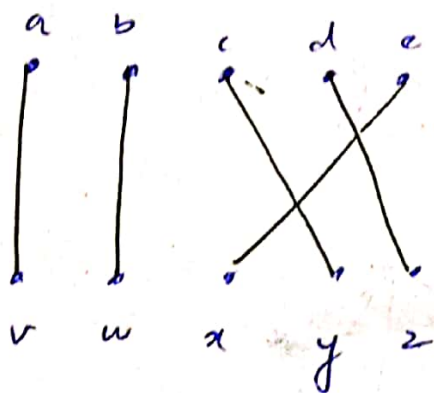 a b c d e
v w x y z